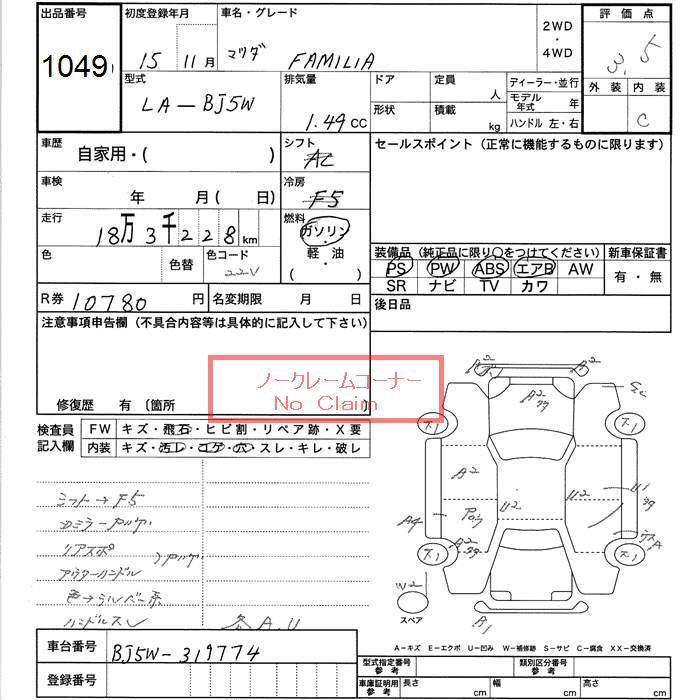 出品番号
1049
初度登録年月
15年 11月
車名・グレード
マツダ FAMILIA
2WD
・
4WD
評価点
3.5
外装 内装
C
型式
LA-BJ5W
排気量
1.49 cc
ドア
定員
人
形状
積載
kg
ディーラー・並行
モデル年式 年
ハンドル 左・右
車歴
自家用・( )
シフト
AC
セールスポイント (正常に機能するものに限ります)
車検
年 月( 日)
冷房
F5
走行
18万3千228km
燃料
ガソリン
・
軽・油
( )
色
色替
色コード
22V
装備品 (純正品に限り○をつけてください)
PS PW ABS エアB AW
SR ナビ TV カワ
新車保証書
有・無
R券 10780円
名変期限 月 日
後日品
注意事項申告欄 (不具合内容等は具体的に記入して下さい)
ノークレームコーナー
No Claim
修復歴 有 〔箇所
検査員
記入欄
FW キズ・飛石・ヒビ割・リペア跡・X要
内装 キズ・汚レ・コゲ・穴・スレ・キレ・破レ
シフト→F5
リアスポ
アウターハンドル
ハンドルスレ
各A.U
A2
A2
A2
ス1
ス1
A2
U2
U2
U1
A4
A2
ス1
ス1
W2
スペア
A-キズ E-エクボ U-凹み W-補修跡 S-サビ C-腐食 XX-交換済
車台番号
BJ5W-319774
登録番号
型式指定番号
参考
類別区分番号
参考
車庫証明用
参考
長さ cm
幅 cm
高さ cm